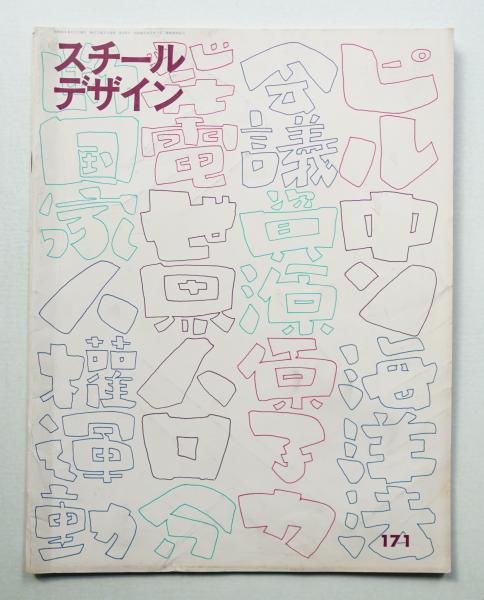 スチール
デザイン
ピル中ソ海洋法
会議資源原子力
電
人口分
国家人権運動
171